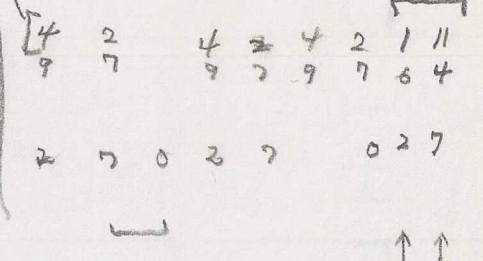 4 2 4 2 4 2 1 11
9 7 9 7 9 7 6 4
2 7 0 2 7 0 2 7